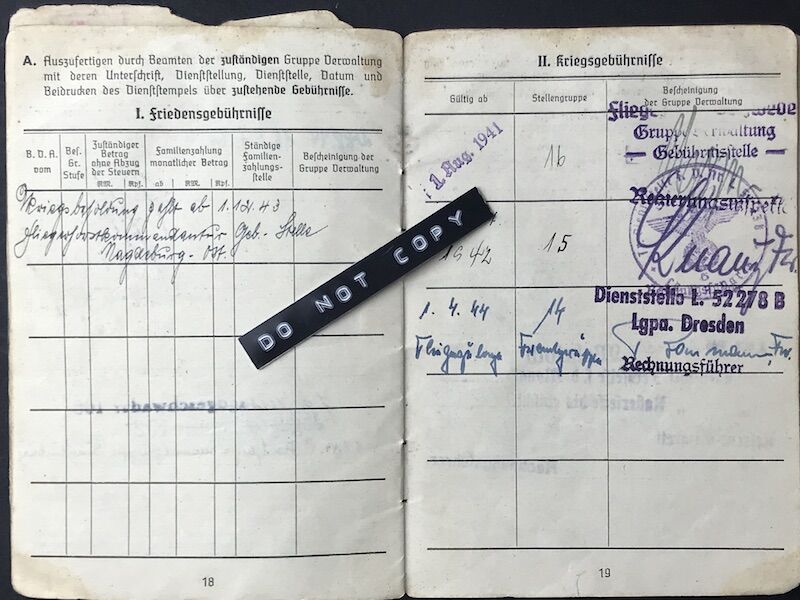 A. Auszufertigen durch Beamten der zuständigen Gruppe Verwaltung
mit deren Unterschrift, Dienststellung, Dienststelle, Datum und
Beidrucken des Dienststempels über zustehende Gebührnisse.
I. Friedensgebührnisse
B. D. A. vom
Bes. Gr. Stufe
Zuständiger Betrag ohne Abzug der Steuern
RM. Rpf.
Familienzahlung monatlicher Betrag
ab RM. Rpf.
Ständige Familien-zahlungs-stelle
Bescheinigung der Gruppe Verwaltung
Kriegsbesoldung gezahlt ab 1.12.43
Fliegerhorstkommandantur Geb.-Stelle
Magdeburg-Ost.
18
DO NOT COPY
II. Kriegsgebührnisse
Gültig ab
Stellengruppe
Bescheinigung der Gruppe Verwaltung
1. Aug. 1941
16
Gruppe Verwaltung
— Gebührnisstelle —
Regierungsinspektor
1942
15
1. 4. 44
14
Dienststelle L 52278 B
Lgpa. Dresden
Fliegerzulage
Rechnungsführer
19